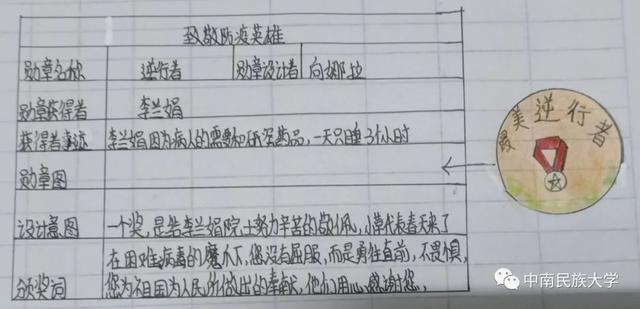 致敬防疫英雄
勋章名称 逆行者 勋章设计者 向娜拉
勋章获得者 李兰娟
获得者事迹 李兰娟因为病人的需要和研发药品，一天只睡3个小时
勋章图
设计意图 一个奖，是给李兰娟院士努力辛苦的敬佩，小草代表春天来了
在困难病毒的魔爪下，您没有屈服，而是勇往直前，不畏惧，
颁奖词 您为祖国为人民所做出的奉献，他们用心感谢您，
最美逆行者
中南民族大学